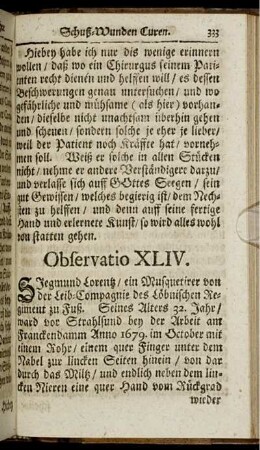 Schuß-Wunden Curen. 333
Hiebey habe ich nur dis wenige erinnern
wollen / daß wo ein Chirurgus seinem Pati-
enten recht dienen und helffen will / es dessen
Beschwerungen genau untersuchen / und wo
gefährliche und mühsame (als hier) vorhan-
den / dieselbe nicht unachtsam überhin gehen
und scheuen / sondern solche je eher je lieber /
weil der Patient noch Kräffte hat / vorneh-
men soll. Weiß er solche in allen Stücken
nicht / nehme er andere Verständigere darzu /
und verlasse sich auff GOttes Seegen / sein
gut Gewissen / welches begierig ist / dem Nech-
sten zu helffen / und denn auff seine fertige
Hand und erlernete Kunst / so wird alles wohl
von statten gehen.
Observatio XLIV.
SJegmund Lorentz / ein Musquetirer von
der Leib-Compagnie des Löbnischen Re-
giment zu Fuß. Seines Alters 32. Jahr /
ward vor Strahlsund bey der Arbeit am
Franckendamm Anno 1679. im October mit
einem Rohr / einem quer Finger unter dem
Nabel zur lincken Seiten hinein / von dar
durch das Miltz / und endlich neben dem lin-
cken Nieren eine quer Hand vom Rückgrad
wieder